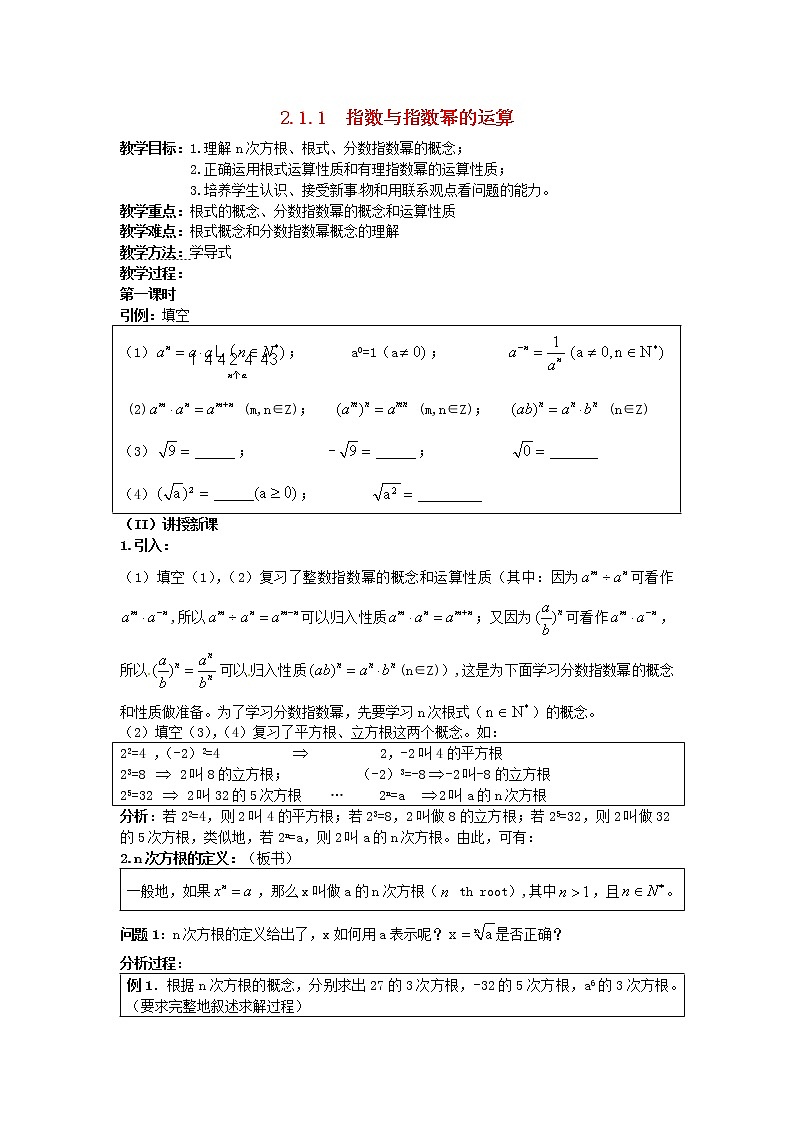 2.1.1 指数与指数幂的运算
教学目标:1.理解n次方根、根式、分数指数幂的概念;
2.正确运用根式运算性质和有理指数幂的运算性质;
3.培养学生认识、接受新事物和用联系观点看问题的能力。
教学重点:根式的概念、分数指数幂的概念和运算性质
教学难点:根式概念和分数指数幂概念的理解
教学方法:学导式
教学过程:
第一课时
引例:填空
(1) aⁿ=a·a (n∈N*); a⁰=1(a≠0); a⁻ⁿ=1/aⁿ (a≠0,n∈N*)
n个a
(2)aᵐ·aⁿ=aᵐ⁺ⁿ (m,n∈Z); (aᵐ)ⁿ=aᵐⁿ (m,n∈Z); (ab)ⁿ=aⁿ·bⁿ (n∈Z)
(3) √9=_____; -√9=_____; √0=______
(4) (√a)²=_____(a≥0); √a²=________
(II)讲授新课
1.引入:
(1)填空(1),(2)复习了整数指数幂的概念和运算性质(其中:因为aᵐ÷aⁿ可看作
aᵐ·a⁻ⁿ,所以aᵐ÷aⁿ=aᵐ⁻ⁿ可以归入性质aᵐ·aⁿ=aᵐ⁺ⁿ;又因为(a/b)ⁿ可看作aᵐ·a⁻ⁿ,
所以(a/b)ⁿ=aⁿ/bⁿ可以归入性质(ab)ⁿ=aⁿ·bⁿ(n∈Z)),这是为下面学习分数指数幂的概念
和性质做准备。为了学习分数指数幂,先要学习n次根式(n∈N*)的概念。
(2)填空(3),(4)复习了平方根、立方根这两个概念。如:
2²=4 ,(-2)²=4 ⇒ 2,-2叫4的平方根
2³=8 ⇒ 2叫8的立方根; (-2)³=-8⇒-2叫-8的立方根
2⁵=32 ⇒ 2叫32的5次方根 … 2ⁿ=a ⇒2叫a的n次方根
分析:若2²=4,则2叫4的平方根;若2³=8,2叫做8的立方根;若2⁵=32,则2叫做32
的5次方根,类似地,若2ⁿ=a,则2叫a的n次方根。由此,可有:
2.n次方根的定义:(板书)
一般地,如果xⁿ=a,那么x叫做a的n次方根(n th root),其中n>1,且n∈N*。
问题1:n次方根的定义给出了,x如何用a表示呢?x=ⁿ√a是否正确?
分析过程:
例1.根据n次方根的概念,分别求出27的3次方根,-32的5次方根,a⁶的3次方根。
(要求完整地叙述求解过程)